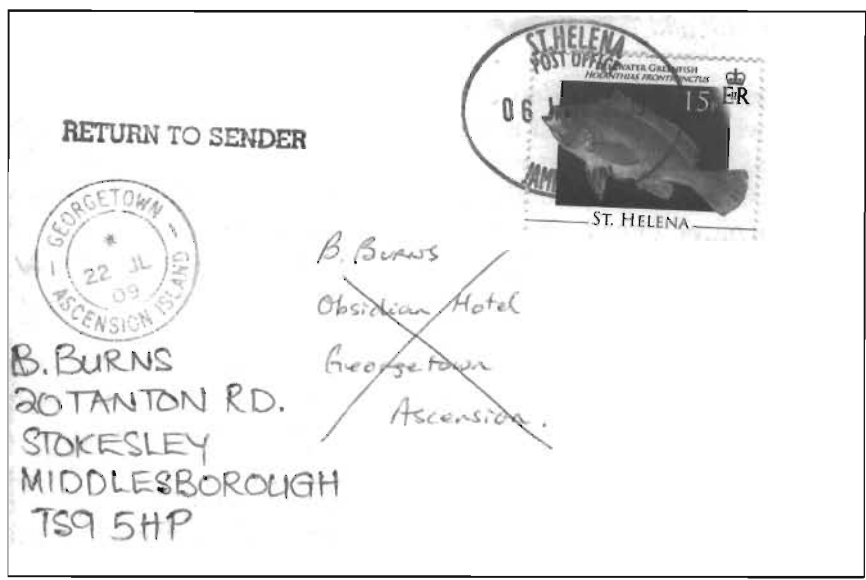 ST. HELENA
POST OFFICE
06 J
WATER GREENFISH
HOLANTHIAS FRONTICINCTUS
15
EIIR
ST. HELENA
RETURN TO SENDER
GEORGETOWN
22 JL
09
ASCENSION ISLAND
B. Burns
Obsidian Hotel
Georgetown
Ascension.
B. BURNS
20 TANTON RD.
STOKESLEY
MIDDLESBOROUGH
TS9 5HP